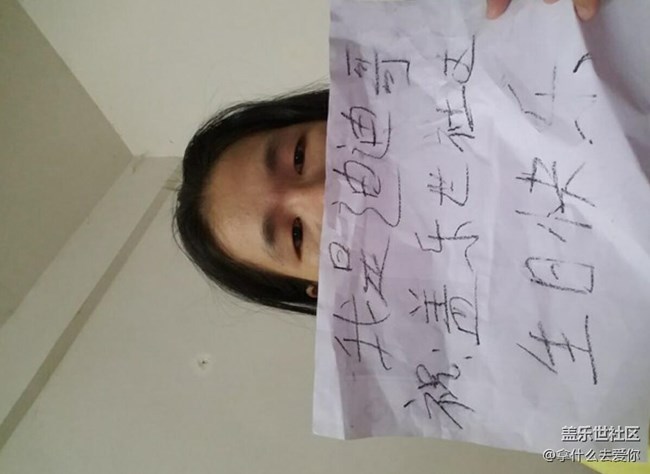 我是迪迪哥
祝:盖乐世社区
生日快乐
盖乐世社区
@拿什么去爱你